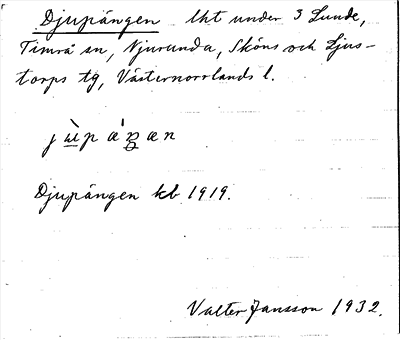 Djupängen lht under 3 Lunde,
Timrå sn, Njurunda, Sköns och Ljus-
torps tg, Västernorrlands l.
Djupängen kb 1919.
Valter Jansson 1932.